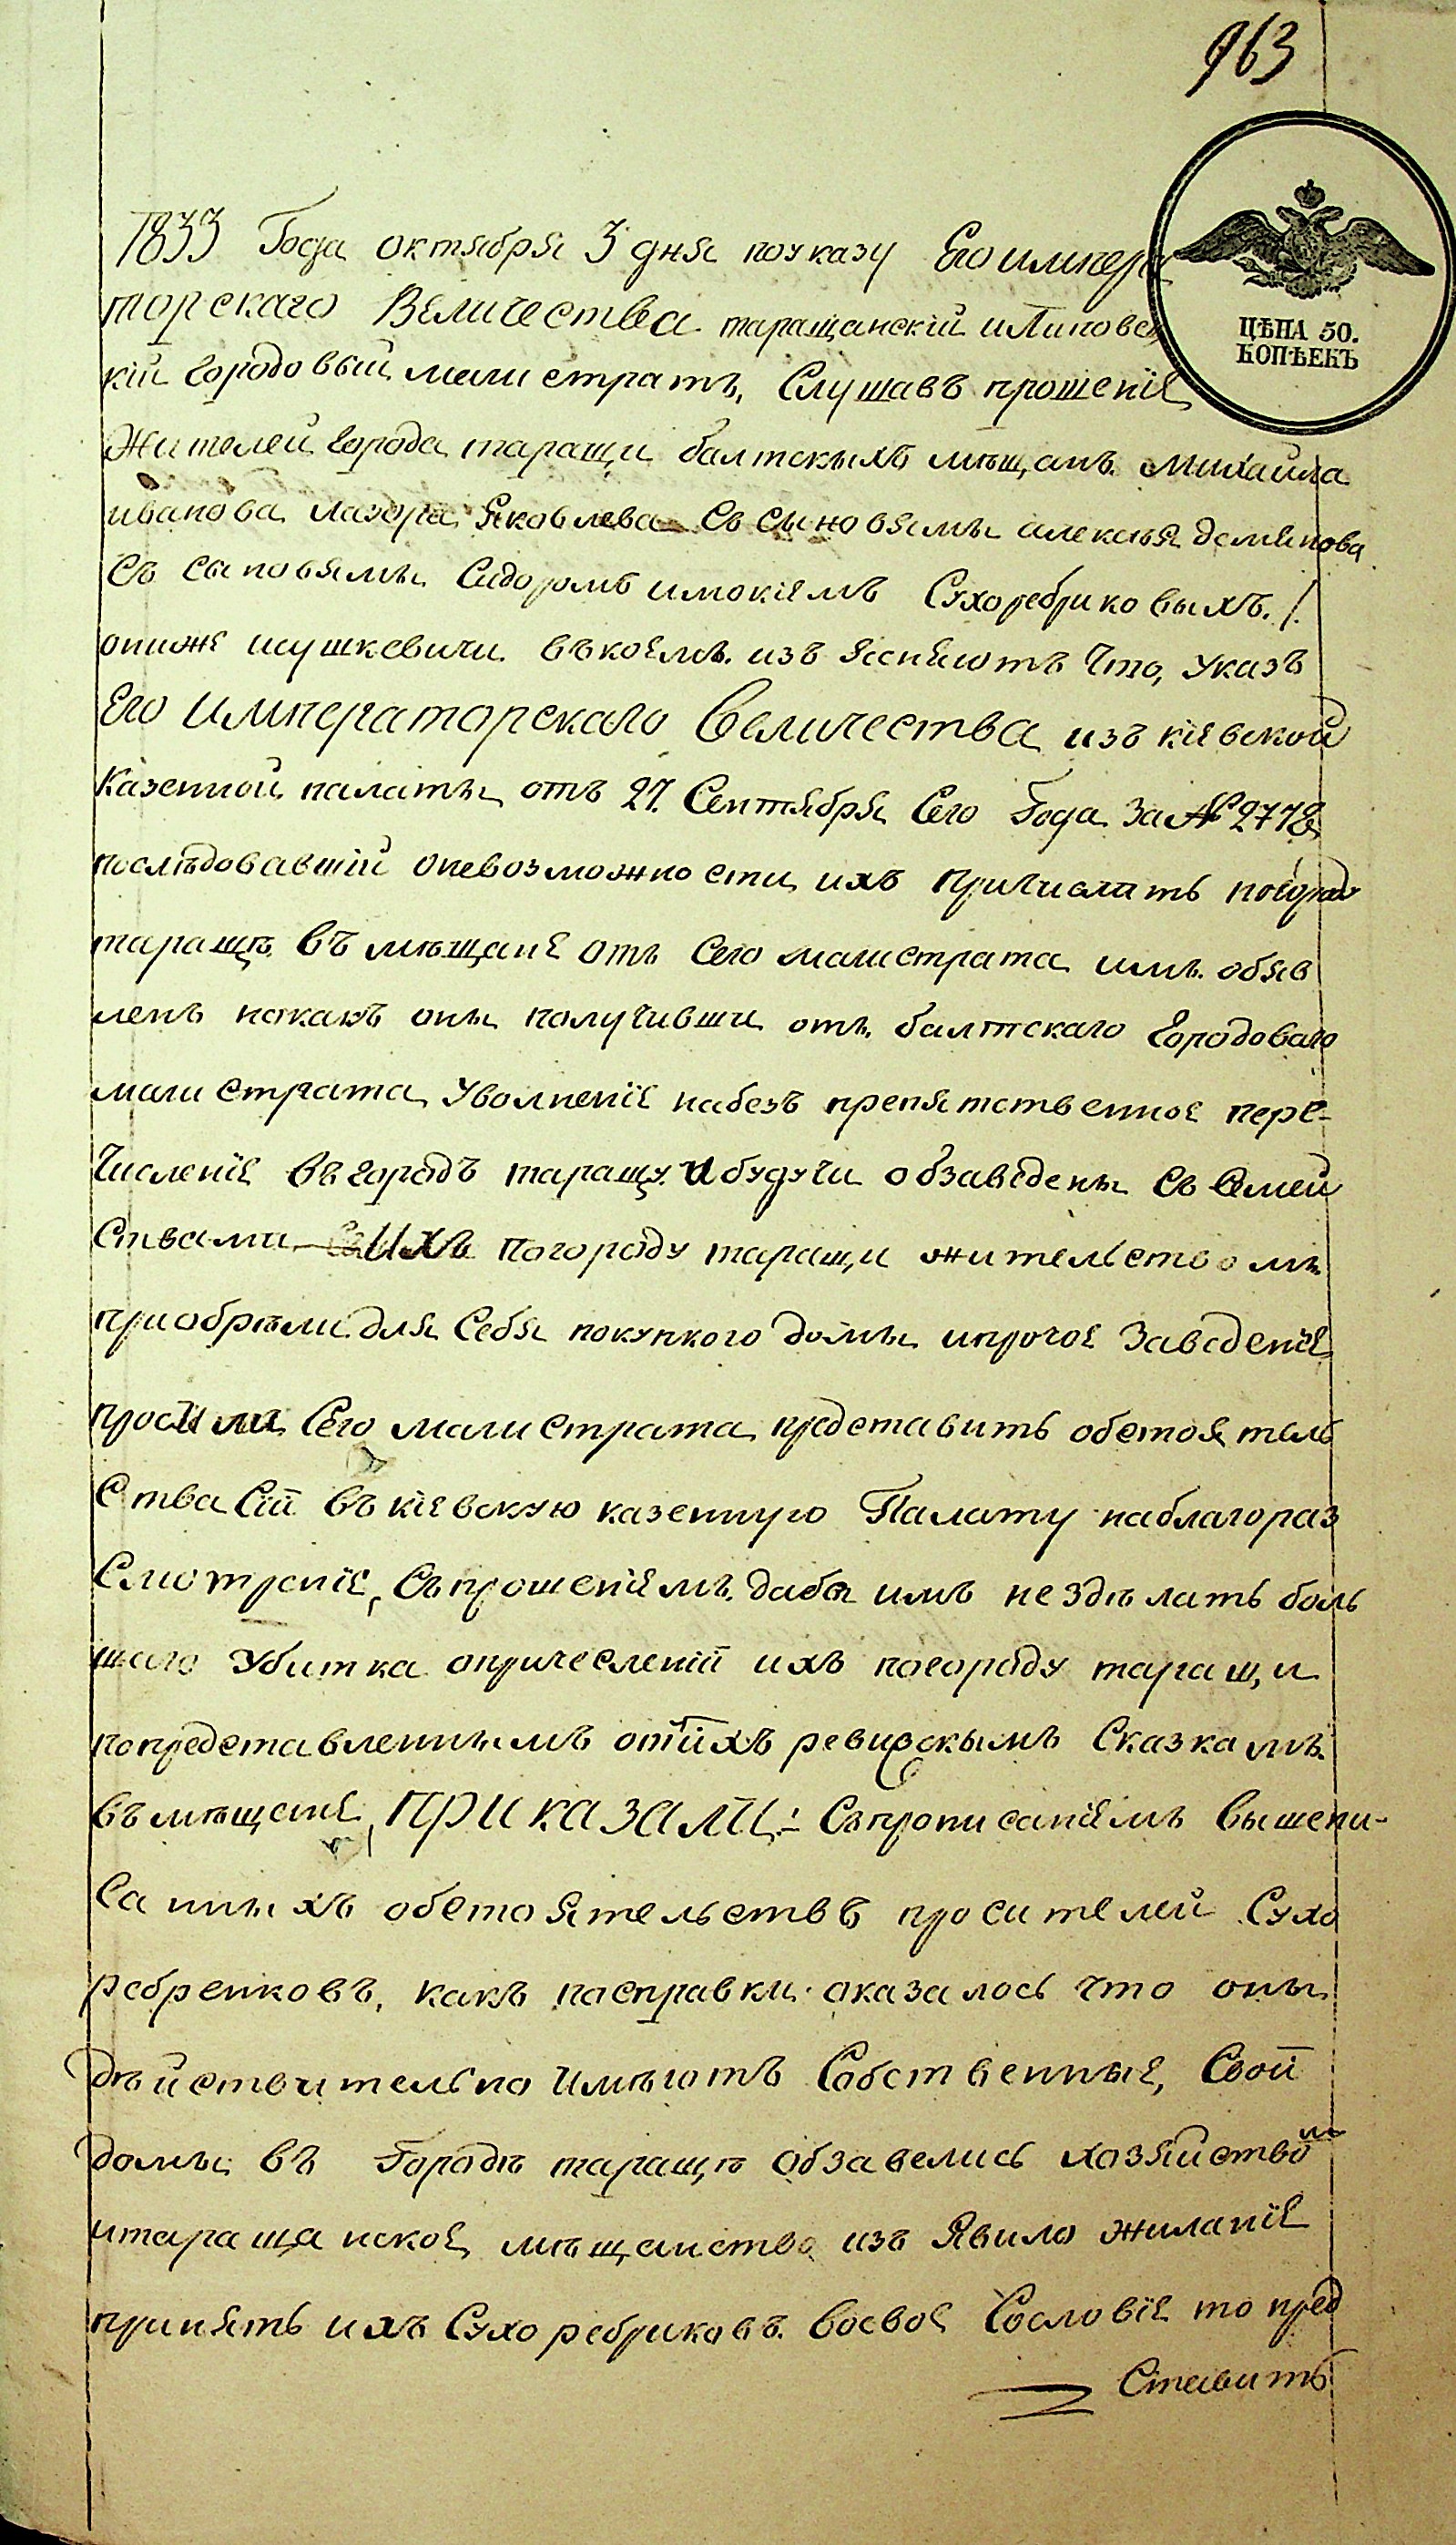 963
ЦѢНА 50.
КОПѢЕКЪ
1833 Года октября 3 дня поуказу Его импера
торскаго Величества таращанскій иЛиповец
кій городовый магистратъ, Слушавъ прошеніе
Жителей города таращи балтскыхъ мѣщанъ Михайла
иванова лазора Яковлева Съ Сыновямы алексѣя демянова
Съ Сыновямы Сидоромъ имокіемъ Сухоребриковыхъ ./.
ониже шушкевичи въкоемъ изъ ясняютъ Что, Указъ
Его Императорскаго Величества изъ кіевской
Казенной палаты отъ 27 Сентября Сего Года За № 2778
послѣдовавшій оневозможности ихъ причислать погораду
таращѣ въ мѣщане отъ Сего магистрата имъ объяв
ленъ нокакъ оны получивши отъ балтскаго Городоваго
магистрата Уволненіе набезъ препятственное пере-
Численіе въгородъ таращу ибудучи обзаведены Съ Семей
Ствами Ихъ погороду таращи жительствомъ
приобрѣли для Себя покупкого домы ипрочое Заведеніе
просили Сего магистрата представить обстоятель
Ства Сіи въкіевскую казенную Палату наблагораз
Смотреніе, Съпрошеніемъ дабы имъ нездѣлать боль
шаго Убитка опричесленіи ихъ погораду таращи
попредставленнымъ отъихъ ревизскымъ Сказкамъ
въмѣщане, ПРИКАЗАЛИ: Съпрописаніемъ вышепи-
Санныхъ обстоятельствъ просителей Сухо
ребренковъ, какъ поcправки оказалось что оны
дѣйствительно имѣютъ Собственные, Свои
домы въ Городѣ таращѣ обзавелись хозяйством
итаращанское мѣщанство изъ Явило жиланіе
принять ихъ Сухоребриковъ восвое Сословіе то пред
Ставить